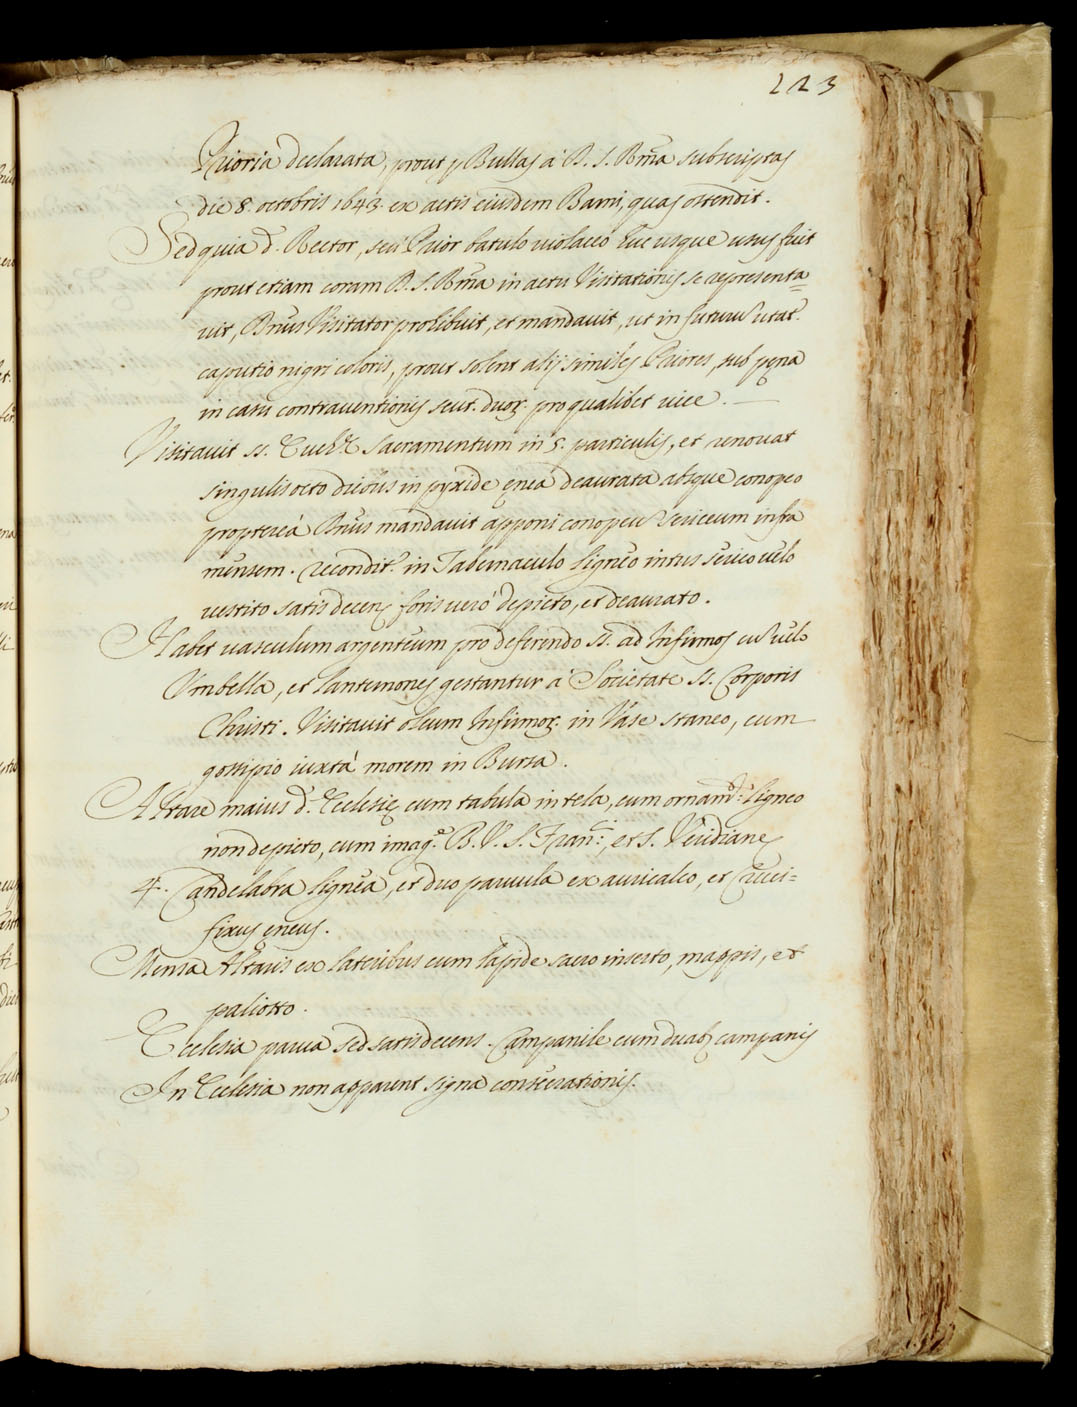 223
Prioria declarata, prout p Bullas à D. S. Rma subscriptas
die 8. octobris 1643. ex actis eiusdem Barni, quas ostendit.
Sed quia d. Rector, seù Prior batulo violaceo huc usque usus fuit
prout etiam coram D. S. Rma in actu Visitationis se representa=
uit, Dnus Visitator prohibuit, et mandauit, ut in futurũ utat.r
caputio nigri coloris, prout solent alij similes Priores, sub pęna
in casu contrauentionis scut. duoȝ. pro qualibet vice.
Visitauit SS. Euch.e Sacramentum in 5. particulis, et renouat
singulis octo diebus in pyxide ęnea deaurata absque conopeo
proptereà Dnus mandauit apponi conopeũ sericeum infra
mensem. recondit.r in Tabernaculo ligneo intus serico uelo
uestito satis decenȝ foris uerò depicto, et deaurato.
Habet uasculum argenteum pro deferendo SS. ad Infirmos cũ uelo
Vmbella, et lanternones gestantur à Societate SS. Corporis
Christi. Visitauit oleum Infirmoȝ. in Vase staneo, cum
gossipio iuxtà morem in Bursa.
Altare maius d. Ecclesię cum tabula in tela, cum ornam.to ligneo
non depicto, cum imag.e B. V. S. Fran.ci, et S. Viridianę
4. Candelabra lignea, et duo paruula ex auricalco, et Cruci=
fixus eneus.
Mensa Altaris ex lateribus cum lapide sacro inserto, mappis, et
paliotto.
Ecclesia parua sed satis decens. Campanile cum duabȝ campanis
In Ecclesia non apparent signa consecrationis.